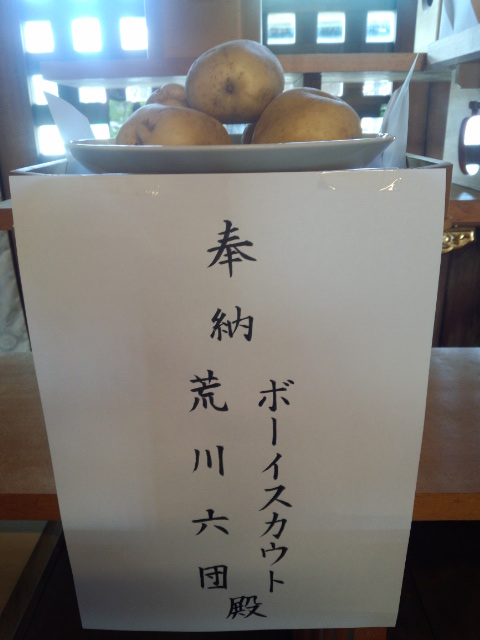 奉納
ボーイスカウト
荒川六団
殿